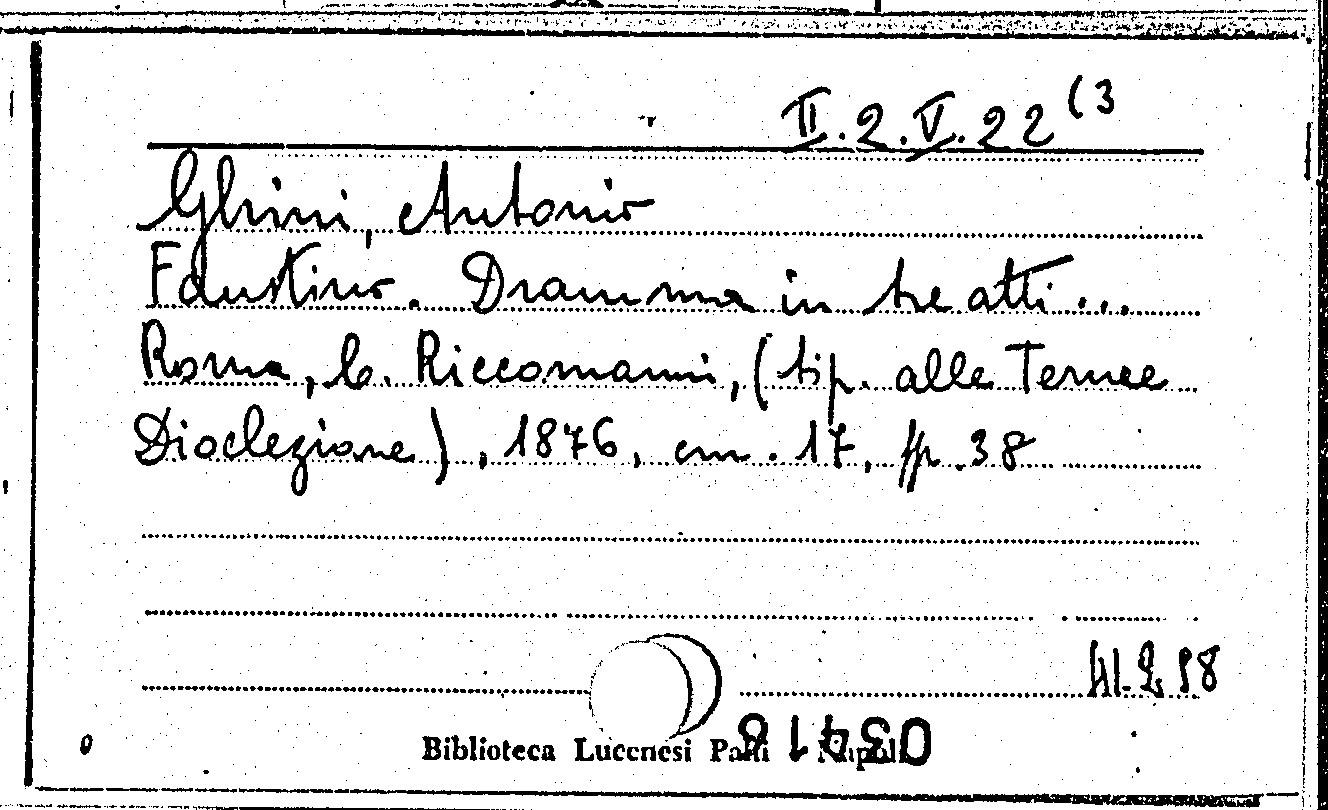 II.2.V.22(3
Ghini, Antonio
Faustino. Dramma in tre atti...
Roma, C. Riccomanni, (tip. alle Terme
Dioclezione), 1876, cm. 17, pp. 38
Biblioteca Lucchesi Palli Napoli
03418